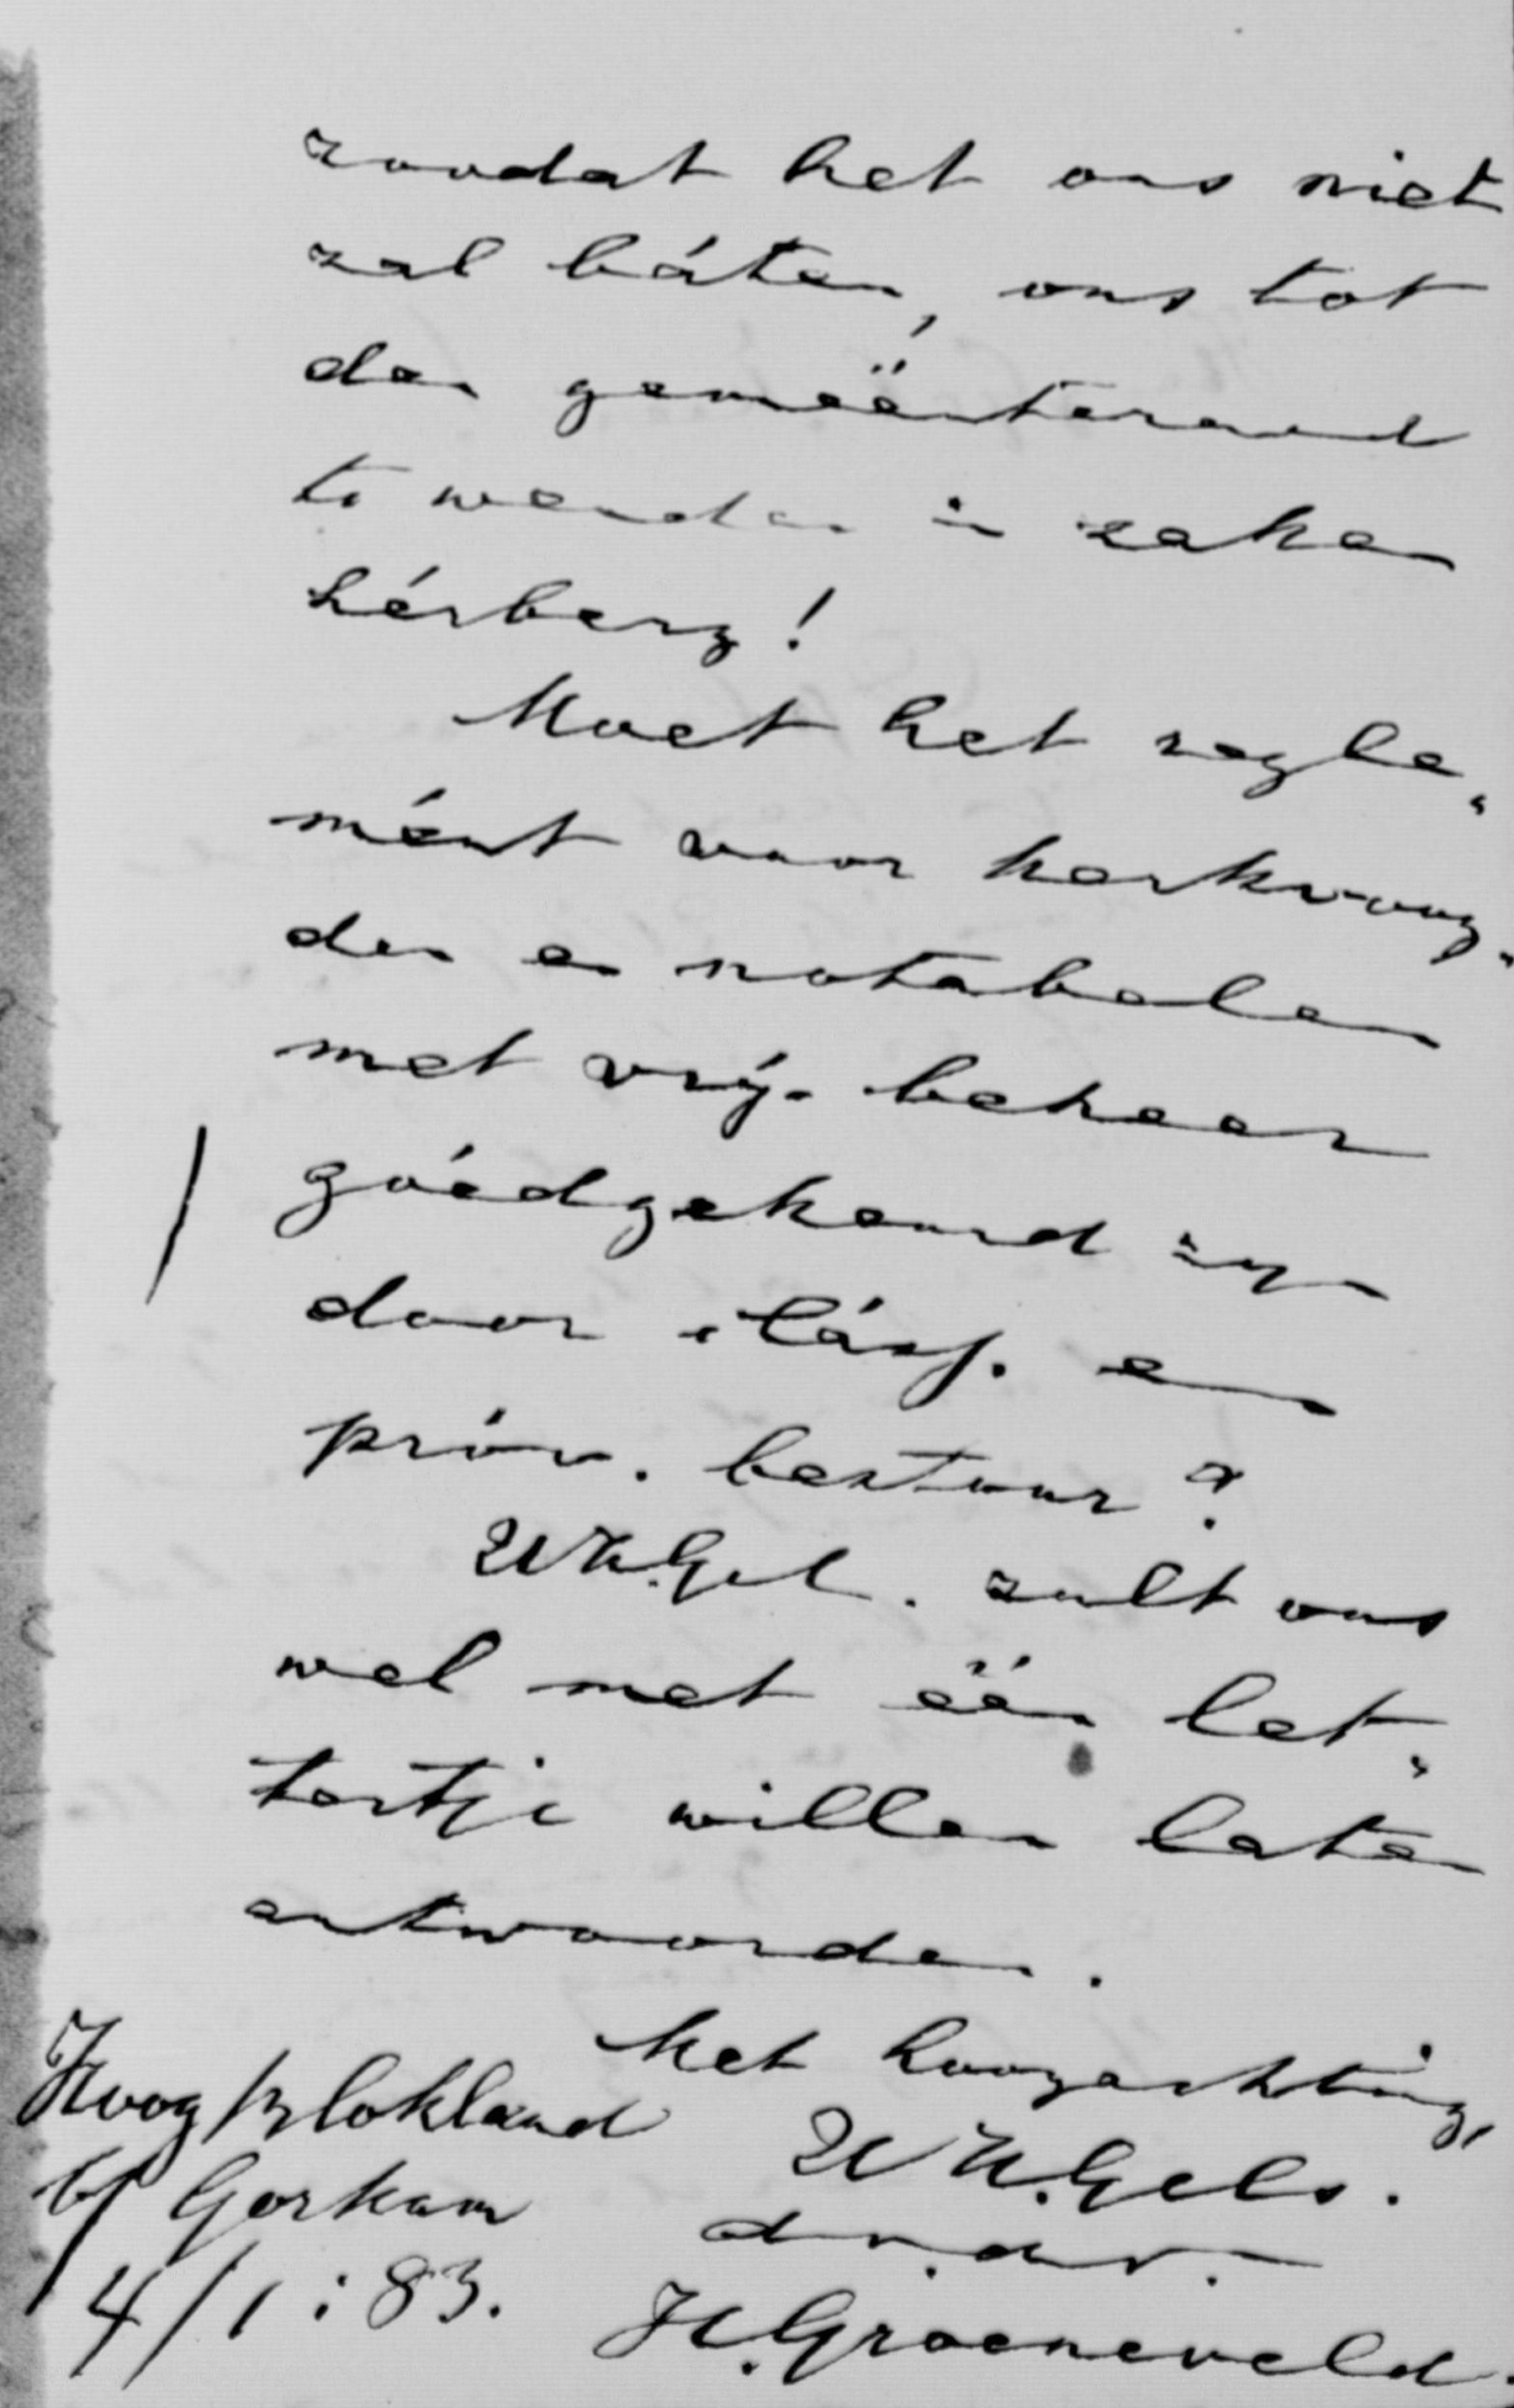 zoodat het ons niet
zal báten, ons tot
den gemëënteraad
te wenden in zaken
hérberg!
Moet het regle„
mént voor kerkvoog„
den en notabelen
met vrij- beheer
góedgekeurd zijn
door cláss. en
próv. bestuur?
UWGel. zult ons
wel met één let„
tertje willen laten
antwoorden.
Met hoogachting,
UWGels.
dw.dr.
H. Groeneveld.
Hoog Blokland
bf Gorkum
4/1:83.